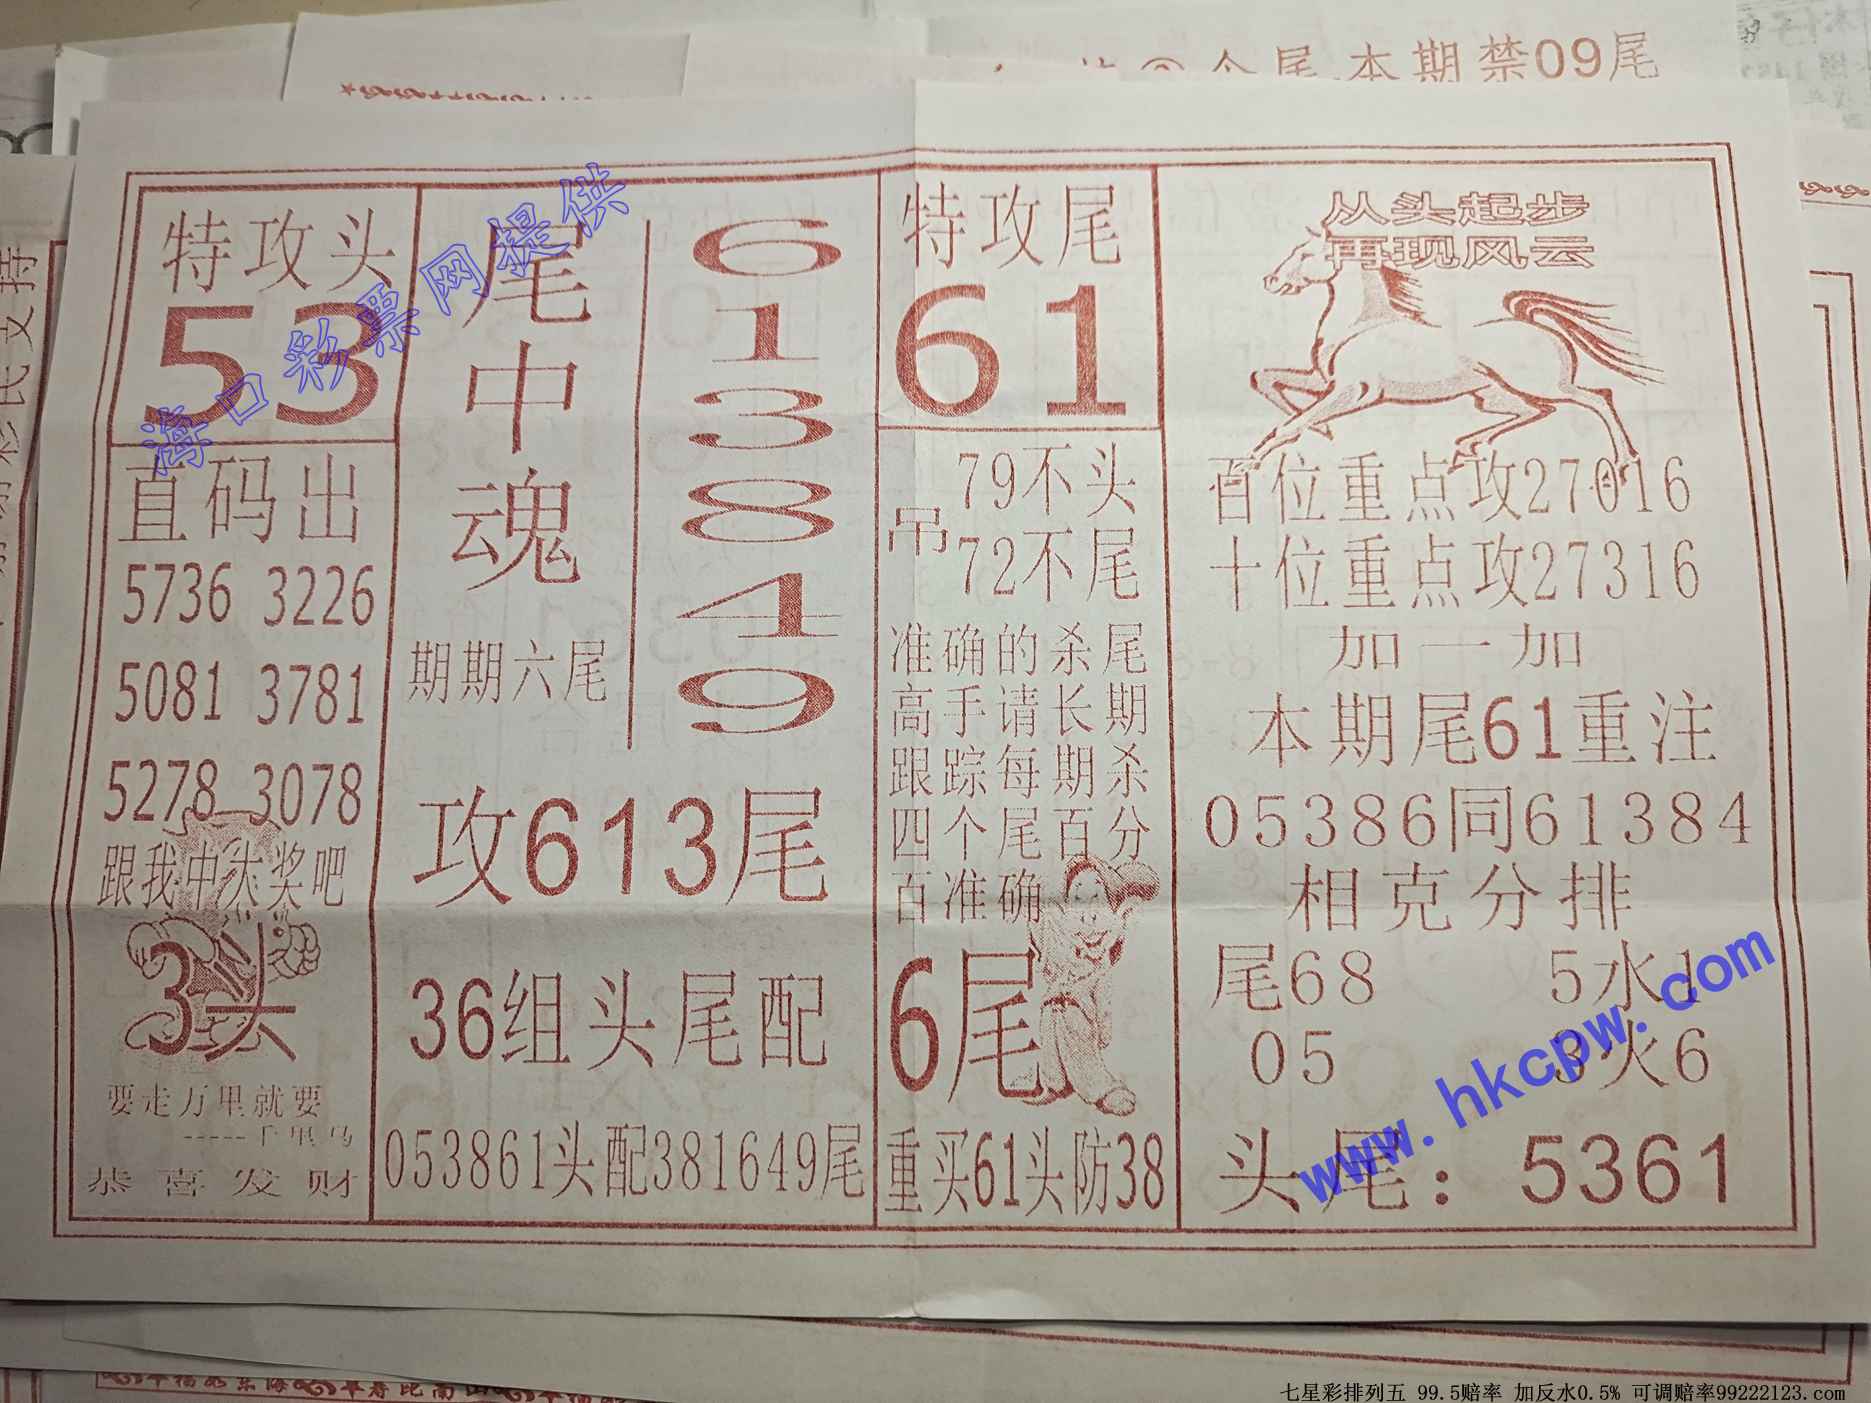 本期禁09尾
特攻头
53
直码出
5736 3226
5081 3781
5278 3078
跟我中大奖吧
3头
要走万里就要
-----千里马
恭喜发财
尾中魂
613849
期期六尾
攻613尾
36组头尾配
053861头配381649尾
特攻尾
61
吊
79不头
72不尾
准确的杀尾
高手请长期
跟踪每期杀
四个尾百分
百准确
6尾
重买61头防38
从头起步
再现风云
百位重点攻27016
十位重点攻27316
加一加
本期尾61重注
05386同61384
相克分排
尾68 5水1
05 3火6
头尾：5361
海口彩票网提供
www.hkcpw.com
七星彩排列五 99.5赔率 加反水0.5% 可调赔率99222123.com